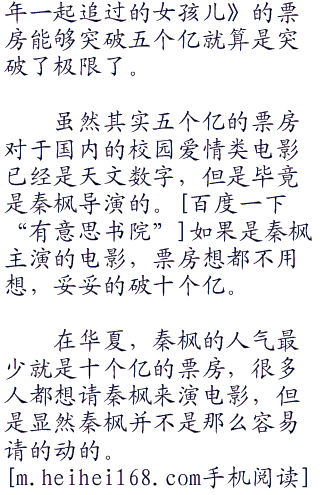 年一起追过的女孩儿》的票
房能够突破五个亿就算是突
破了极限了。
虽然其实五个亿的票房
对于国内的校园爱情类电影
已经是天文数字，但是毕竟
是秦枫导演的。[百度一下
“有意思书院”]如果是秦枫
主演的电影，票房想都不用
想，妥妥的破十个亿。
在华夏，秦枫的人气最
少就是十个亿的票房，很多
人都想请秦枫来演电影，但
是显然秦枫并不是那么容易
请的动的。
[m.heihei168.com手机阅读]